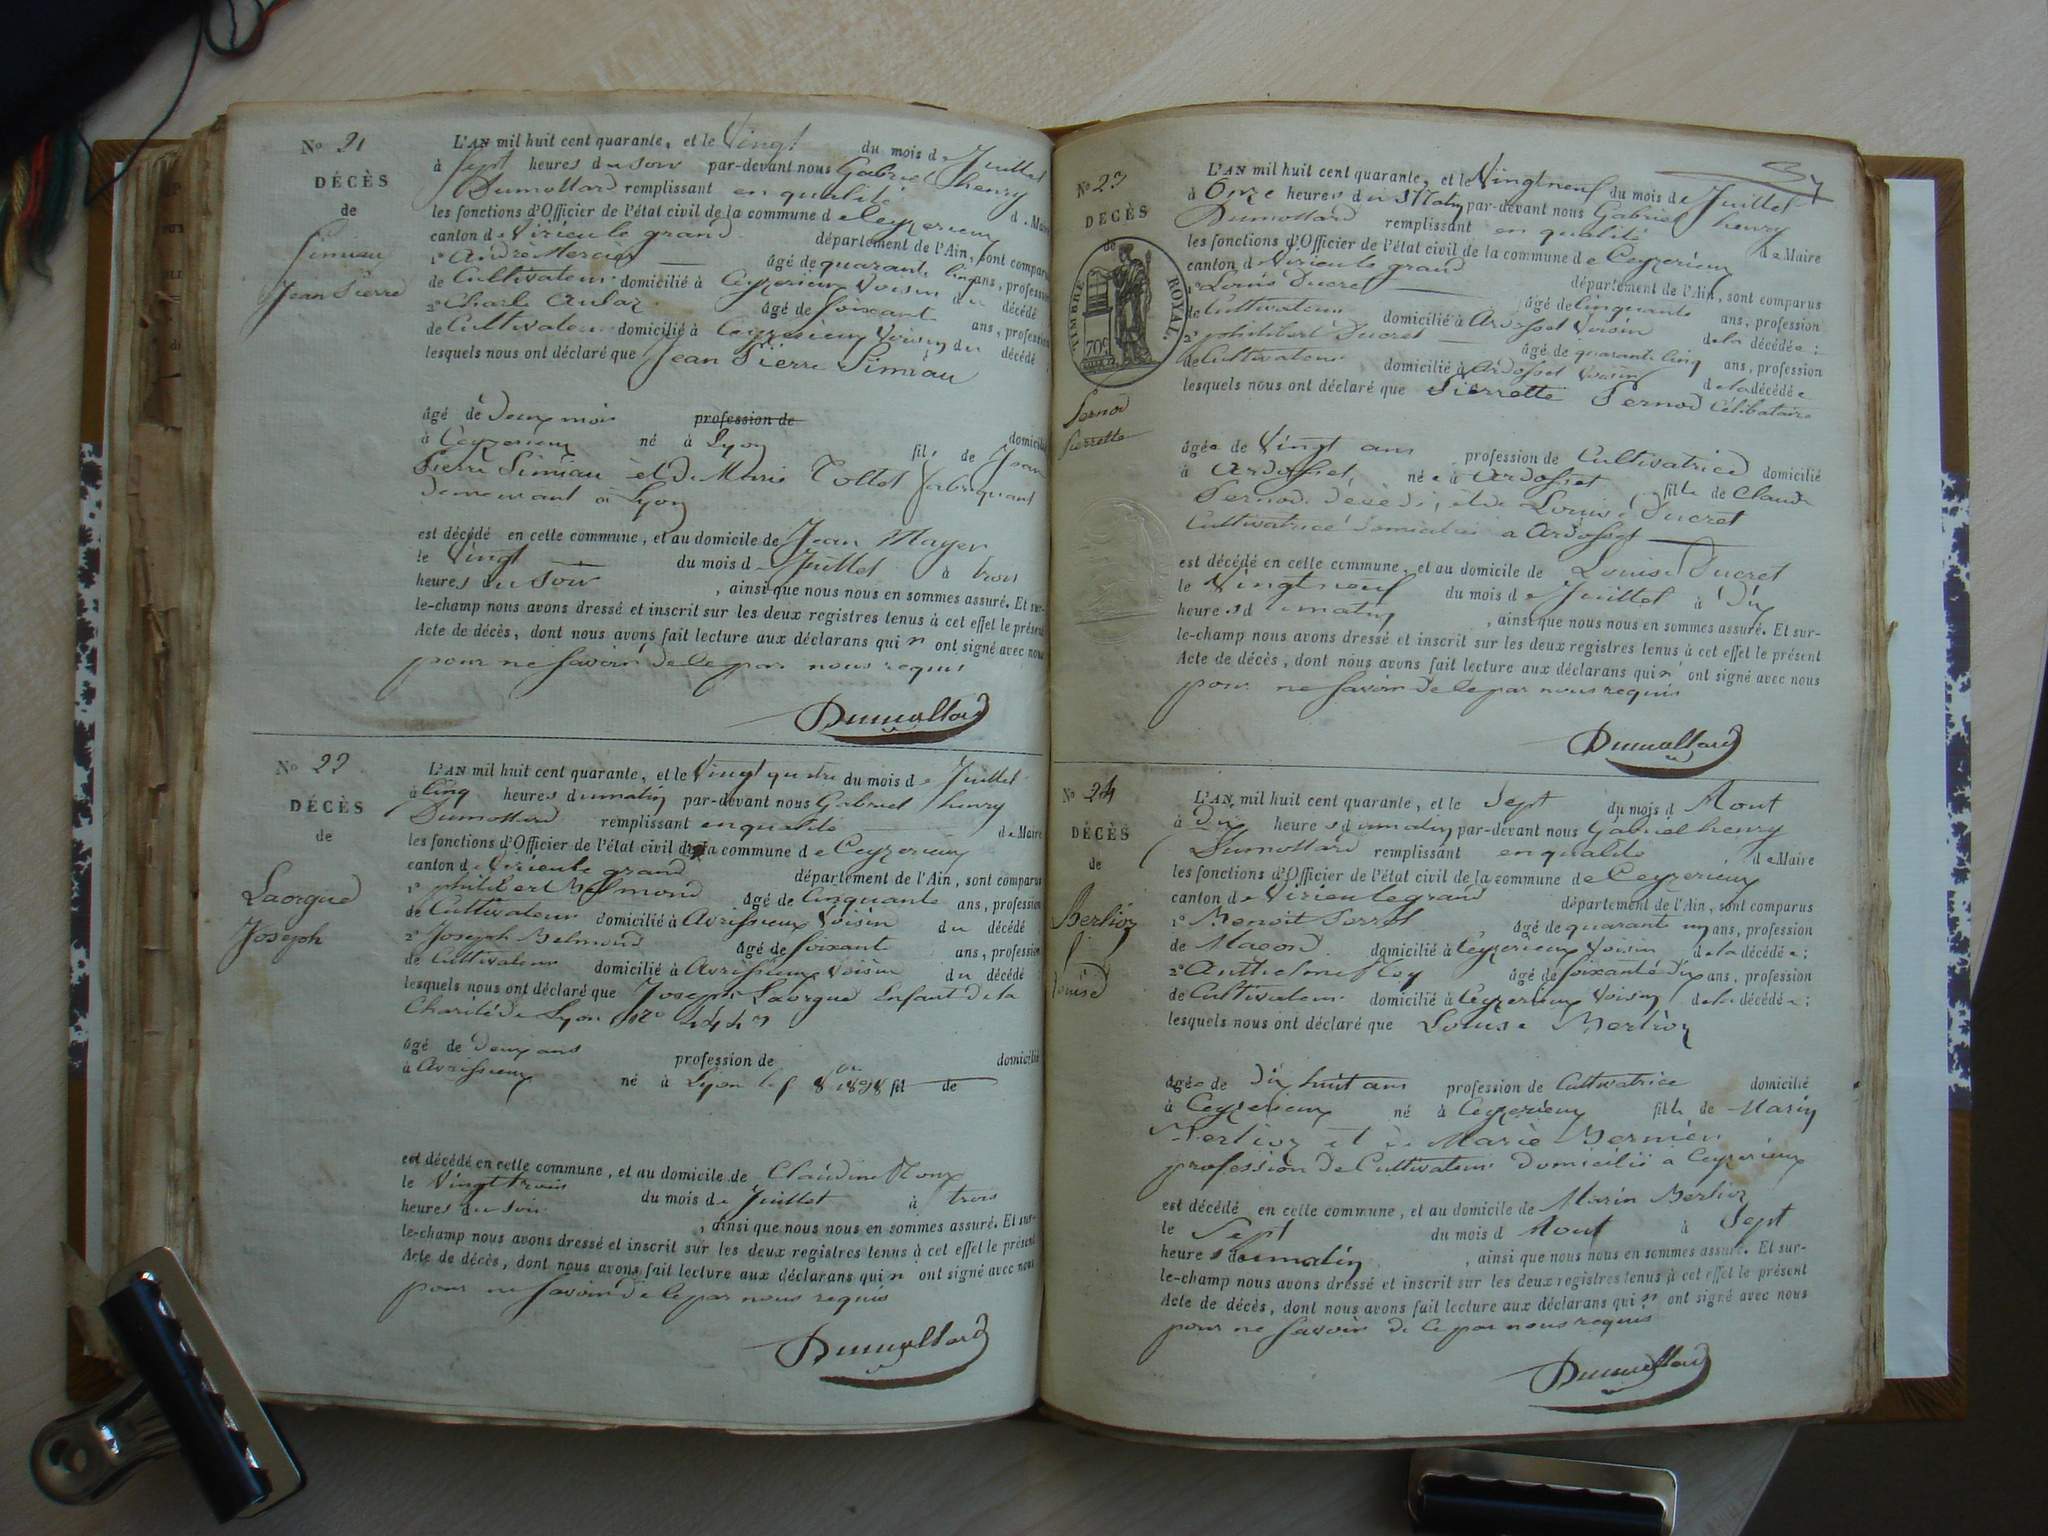 No 21
DÉCÈS
de
Simiau
Jean Pierre
L'AN mil huit cent quarante, et le Vingt du mois de Juillet
à Sept heures du soir par-devant nous Gabriel henry
Dumollard remplissant en qualité de Maire
les fonctions d'Officier de l'état civil de la commune de Ceyzerieux
canton de Virieu le grand département de l'Ain, sont comparus
1o André Mercier âgé de quarante cinq ans, profession
de Cultivateur domicilié à Ceyzerieux Voisin du décédé
2o Charle Aubar âgé de soixante ans, profession
de Cultivateur domicilié à Ceyzerieux Voisin du décédé ;
lesquels nous ont déclaré que Jean Pierre Simiau
âgé de deux mois profession de domicilié
à Ceyzerieux né à Lyon fils de Jean
Pierre Simiau et de Marie Tollet fabriquant
demeurant à Lyon
est décédé en cette commune, et au domicile de Jean Mayer
le Vingt du mois de Juillet à trois
heures du Soir , ainsi que nous nous en sommes assuré. Et sur-
le-champ nous avons dressé et inscrit sur les deux registres tenus à cet effet le présent
Acte de décès, dont nous avons fait lecture aux déclarans qui n' ont signé avec nous
pour ne savoir de ce par nous requis
Dumollard
No 22
DÉCÈS
de
Laorgue
Joseph
L'AN mil huit cent quarante, et le Vingt quatre du mois de Juillet
à Cinq heures du matin par-devant nous Gabriel henry
Dumollard remplissant en qualité de Maire
les fonctions d'Officier de l'état civil de la commune de Ceyzerieux
canton de Virieu le grand département de l'Ain, sont comparus
1o philibert Belmond âgé de Cinquante ans, profession
de Cultivateur domicilié à Avrissieux Voisin du décédé
2o Joseph Belmond âgé de soixante ans, profession
de Cultivateur domicilié à Avrissieux Voisin du décédé ;
lesquels nous ont déclaré que Joseph Laorgue Enfant de la
Charité de Lyon No
âgé de deux ans profession de domicilié
à Avrissieux né à Lyon le 8bre 1838 fil de
est décédé en cette commune, et au domicile de Claudine Roux
le Vingt trois du mois de Juillet à trois
heures du soir , ainsi que nous nous en sommes assuré. Et sur-
le-champ nous avons dressé et inscrit sur les deux registres tenus à cet effet le présent
Acte de décès, dont nous avons fait lecture aux déclarans qui n' ont signé avec nous
pour ne savoir de ce par nous requis
Dumollard
No 23
DÉCÈS
de
TIMBRE ROYAL.
70c
Pernod
Pierrette
L'AN mil huit cent quarante, et le Vingt neuf du mois de Juillet
à Onze heures du Matin par-devant nous Gabriel henry
Dumollard remplissant en qualité de Maire
les fonctions d'Officier de l'état civil de la commune de Ceyzerieux
canton de Virieu le grand département de l'Ain, sont comparus
1o Louis Ducret âgé de Cinquante ans, profession
de Cultivateur domicilié à Ardosset Voisin de la décédée ;
2o philibert Ducret âgé de quarante cinq ans, profession
de Cultivateur domicilié à Ardosset Voisin de la décédée
lesquels nous ont déclaré que Pierrette Pernod Célibataire
âgée de Vingt ans profession de Cultivatrice domicilié
à Ardosset, née à Ardosset fille de Claude
Pernod décédé, et de Louise Ducret
Cultivatrice domiciliée à Ardosset
est décédé en cette commune, et au domicile de Louise Ducret
le Vingt neuf du mois de Juillet à Dix
heures du matin , ainsi que nous nous en sommes assuré. Et sur-
le-champ nous avons dressé et inscrit sur les deux registres tenus à cet effet le présent
Acte de décès, dont nous avons fait lecture aux déclarans qui n' ont signé avec nous
pour ne savoir de ce par nous requis
Dumollard
No 24
DÉCÈS
de
Berlioz
Louise
L'AN mil huit cent quarante, et le Sept du mois d Aout
à Dix heures du matin par-devant nous Gabriel henry
Dumollard remplissant en qualité de Maire
les fonctions d'Officier de l'état civil de la commune de Ceyzerieux
canton de Virieu le grand département de l'Ain, sont comparus
1o Benoit Porret âgé de quarante un ans, profession
de Maçon domicilié à Ceyzerieux Voisin de la décédée ;
2o Anthelme Roy âgé de soixante dix ans, profession
de Cultivateur domicilié à Ceyzerieux Voisin de la décédée ;
lesquels nous ont déclaré que Louise Berlioz
âgée de Dix huit ans profession de Cultivatrice domicilié
à Ceyzerieux né à Ceyzerieux fille de Marin
Berlioz et de Marie Bernier
profession de Cultivateur domicilié à Ceyzerieux
est décédé en cette commune, et au domicile de Marin Berlioz
le Sept du mois d Aout à Sept
heures du matin , ainsi que nous nous en sommes assuré. Et sur-
le-champ nous avons dressé et inscrit sur les deux registres tenus à cet effet le présent
Acte de décès, dont nous avons fait lecture aux déclarans qui n' ont signé avec nous
pour ne savoir de ce par nous requis
Dumollard